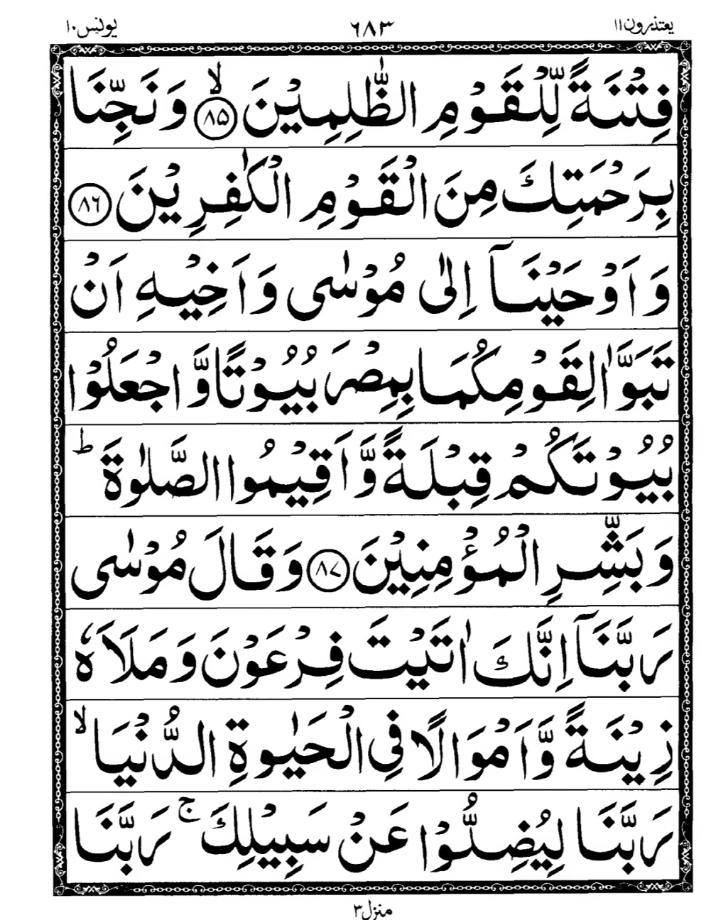 یعتذرون۱۱ ۶۸۳ یونس۱۰
فِتْنَةً لِّلْقَوْمِ الظّٰلِمِیْنَ ۙ۝۸۵ وَ نَجِّنَا
بِرَحْمَتِكَ مِنَ الْقَوْمِ الْكٰفِرِیْنَ ۝۸۶
وَ اَوْحَیْنَاۤ اِلٰی مُوْسٰی وَ اَخِیْهِ اَنْ
تَبَوَّاٰ لِقَوْمِكُمَا بِمِصْرَ بُیُوْتًا وَّ اجْعَلُوْا
بُیُوْتَكُمْ قِبْلَةً وَّ اَقِیْمُوا الصَّلٰوةَ ؕ
وَ بَشِّرِ الْمُؤْمِنِیْنَ ۝۸۷ وَ قَالَ مُوْسٰی
رَبَّنَاۤ اِنَّكَ اٰتَیْتَ فِرْعَوْنَ وَ مَلَاَهٗ
زِیْنَةً وَّ اَمْوَالًا فِی الْحَیٰوةِ الدُّنْیَا ۙ
رَبَّنَا لِیُضِلُّوْا عَنْ سَبِیْلِكَ ۚ رَبَّنَا
منزل۳